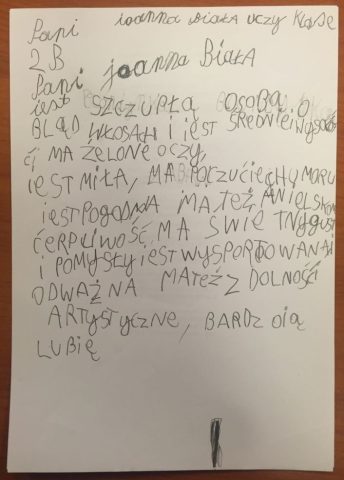 Pani ioanna Biała uczy klase
2 B
Pani joanna Biała
iest SZCZUPŁĄ OSOBĄ O
BLĄD WŁOSAH I iEST ŚREDNIEiWYSOKOŚ
Ći MA ZIELONE OCZY,
iEST MIŁA, MA POCZUĆIE CHUMORU
iEST POGODNA MA TEŻ ANIELSKOM
ĆERPLIWOŚĆ MA ŚWIETNY GUST
I POMYSŁY iEST WYSPORTOWANA I
ODWAŻNA MA TEŻ Z DOLNOŚĆI
ARTYSTYCZNE, BARDZ O iĄ
LUBIĘ